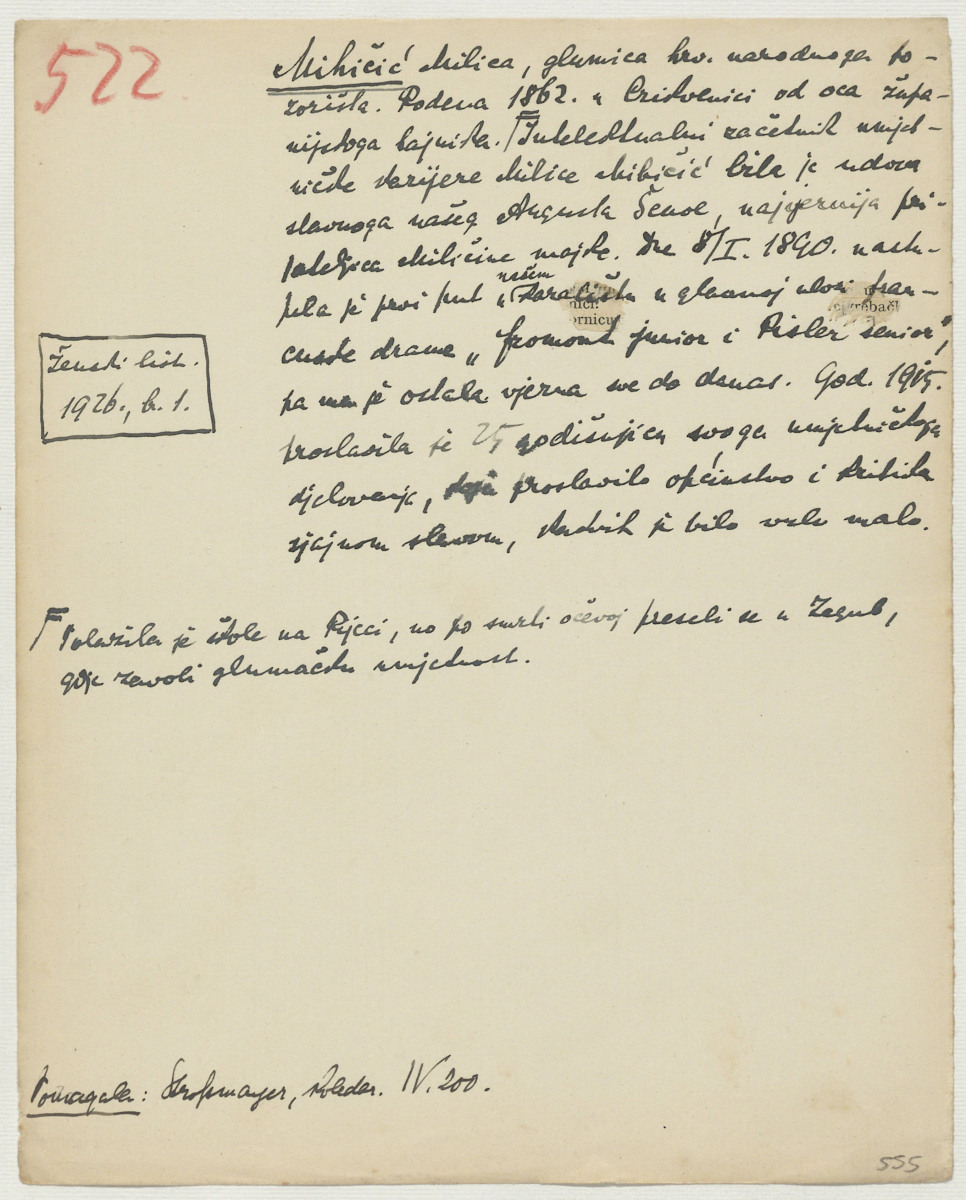 522
Mihičić Milica, glumica hrv. narodnoga po-
zorišta. Rođena 1862. u Crikvenici od oca župa-
nijskoga tajnika. Intelektualni začetnik umjet-
ničke karijere Milice Mihičić bila je udova
slavnoga našeg Augusta Šenoe, najvjernija pri-
jateljica Miličine majke. Dne 8/I. 1890. nastu-
pila je prvi put u našem kazalištu u glavnoj ulozi fran-
cuske drame „Fromont junior i Risler senior",
pa mu je ostala vjerna sve do danas. God. 1915.
proslavila je 25 godišnjicu svoga umjetničkoga
djelovanja, proslavilo općinstvo i kritika
sjajnom slavom, kakvih je bilo vrlo malo.
Ženski list.
1926., br. 1.
Polazila je škole na Rijeci, no po smrti očevoj preseli se u Zagreb,
gdje zavoli glumačku umjetnost.
Pomagala: Stroßmayer, koledar. IV. 200.
555